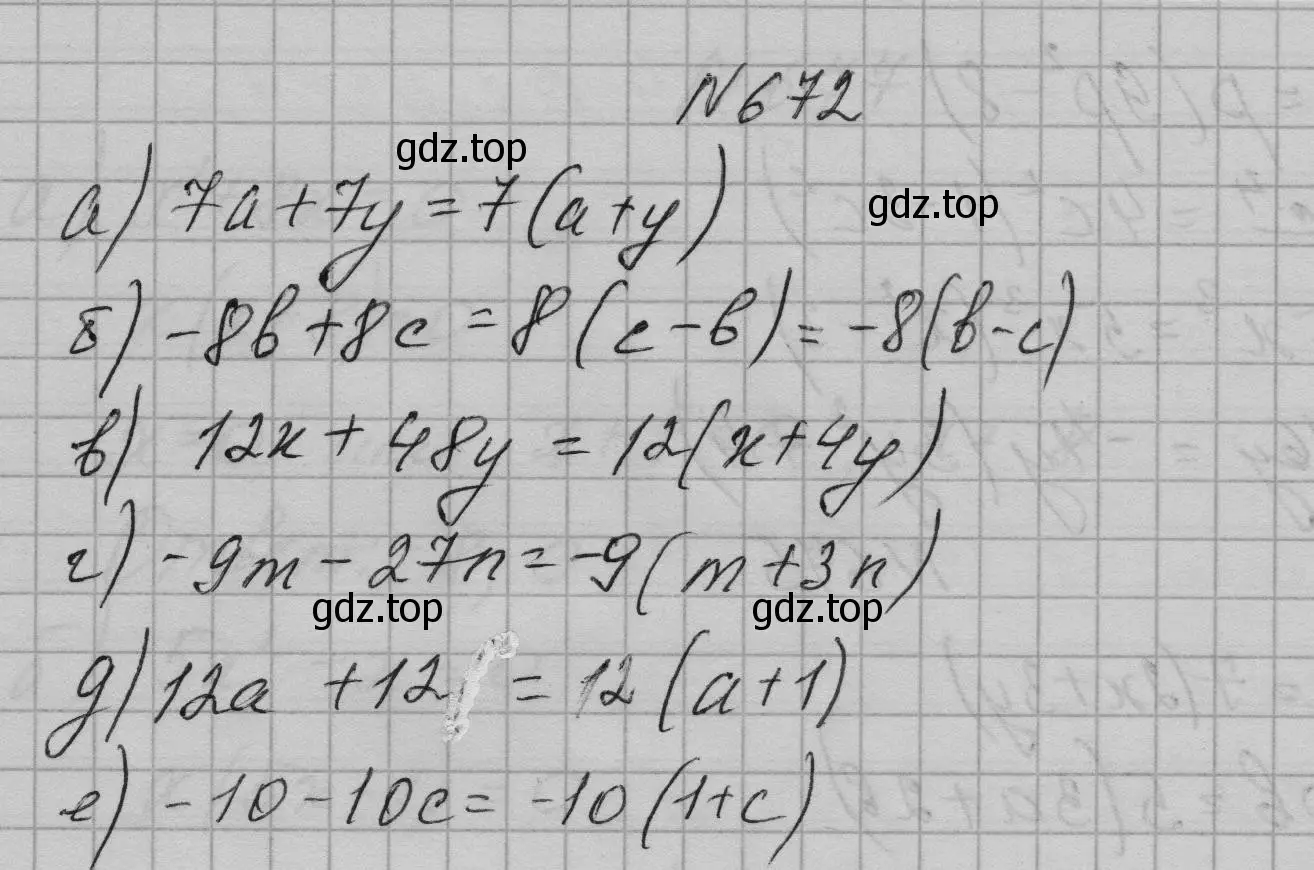 N 672
gdz.top
а) 7a + 7y = 7 (a + y)
gdz.top
б) -8b + 8c = 8 (c - b) = -8 (b - c)
в) 12x + 48y = 12 (x + 4y)
г) -9m - 27n = -9 (m + 3n)
gdz.top gdz.top
д) 12a + 12 = 12 (a + 1)
е) -10 - 10c = -10 (1 + c)